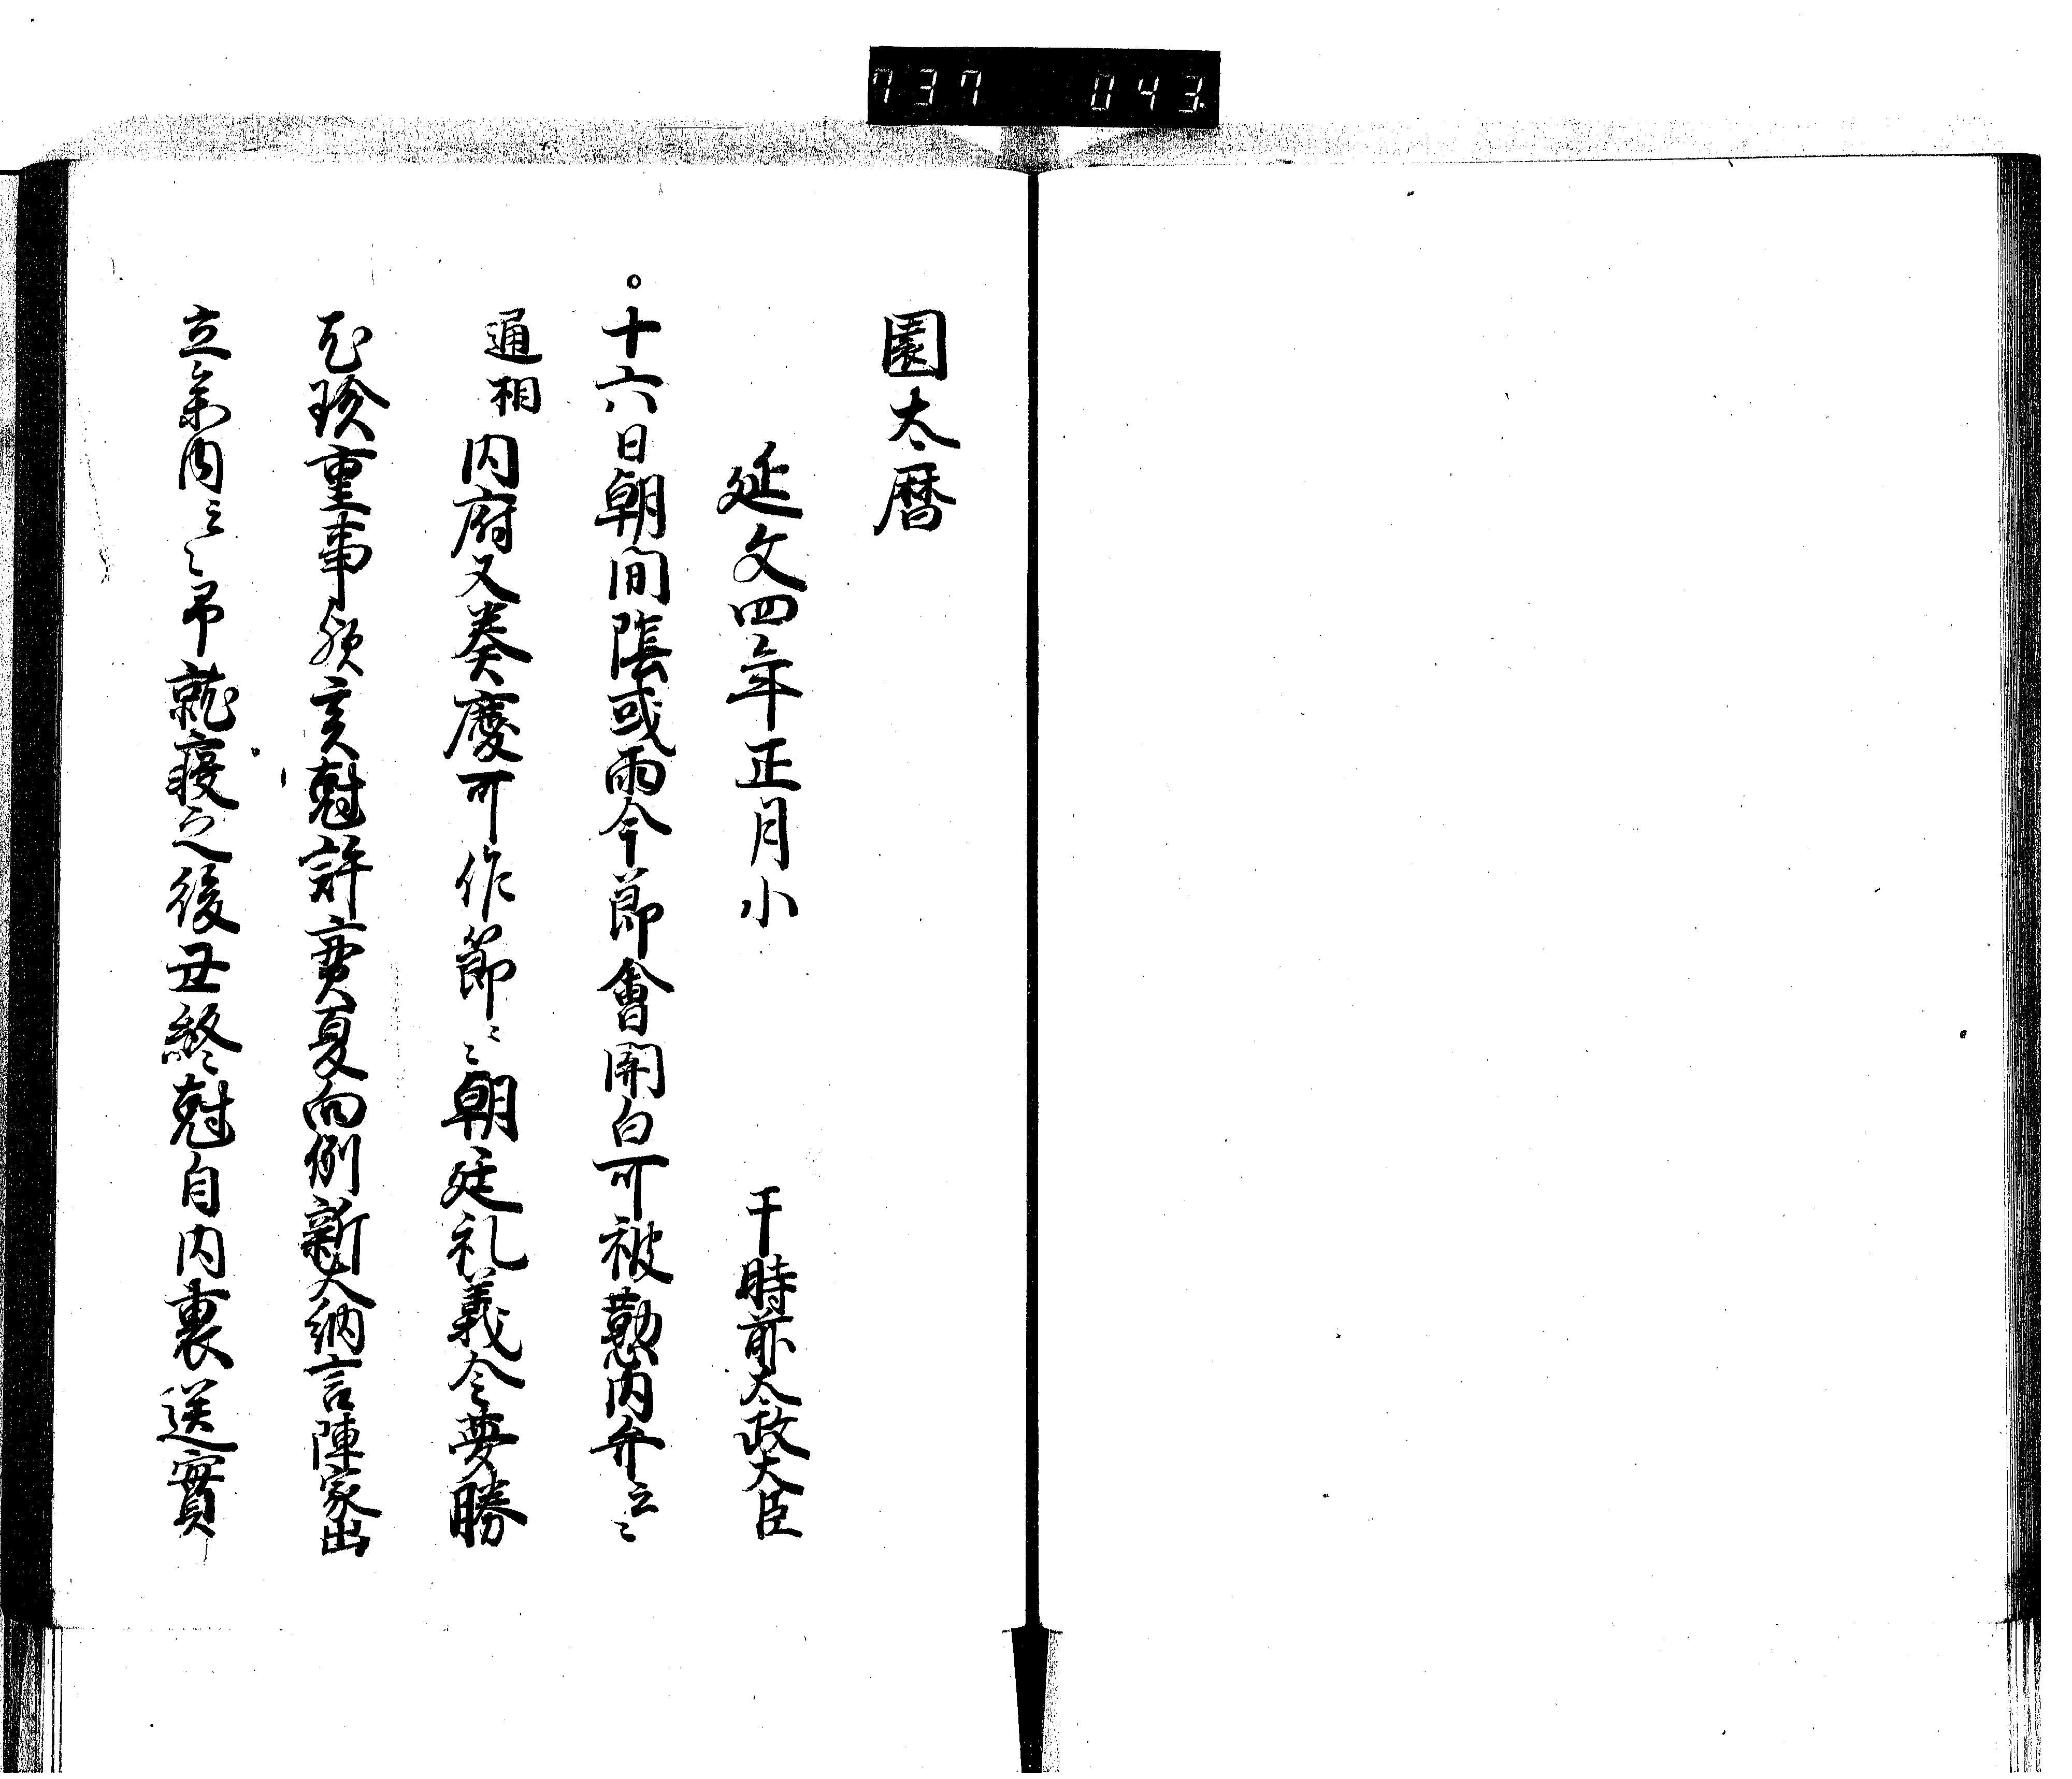 737 043
園太暦
延文四年正月小 于時前太政大臣
。十六日朝間陰或雨今節會開白可被勤内弁云〻
通相内府又奏慶可作節〻〻朝廷礼義令要勝
珍重事須亥尅許賣夏向例新大納言陣家出
立参内云〻予就寝之後丑終尅自内裏送實